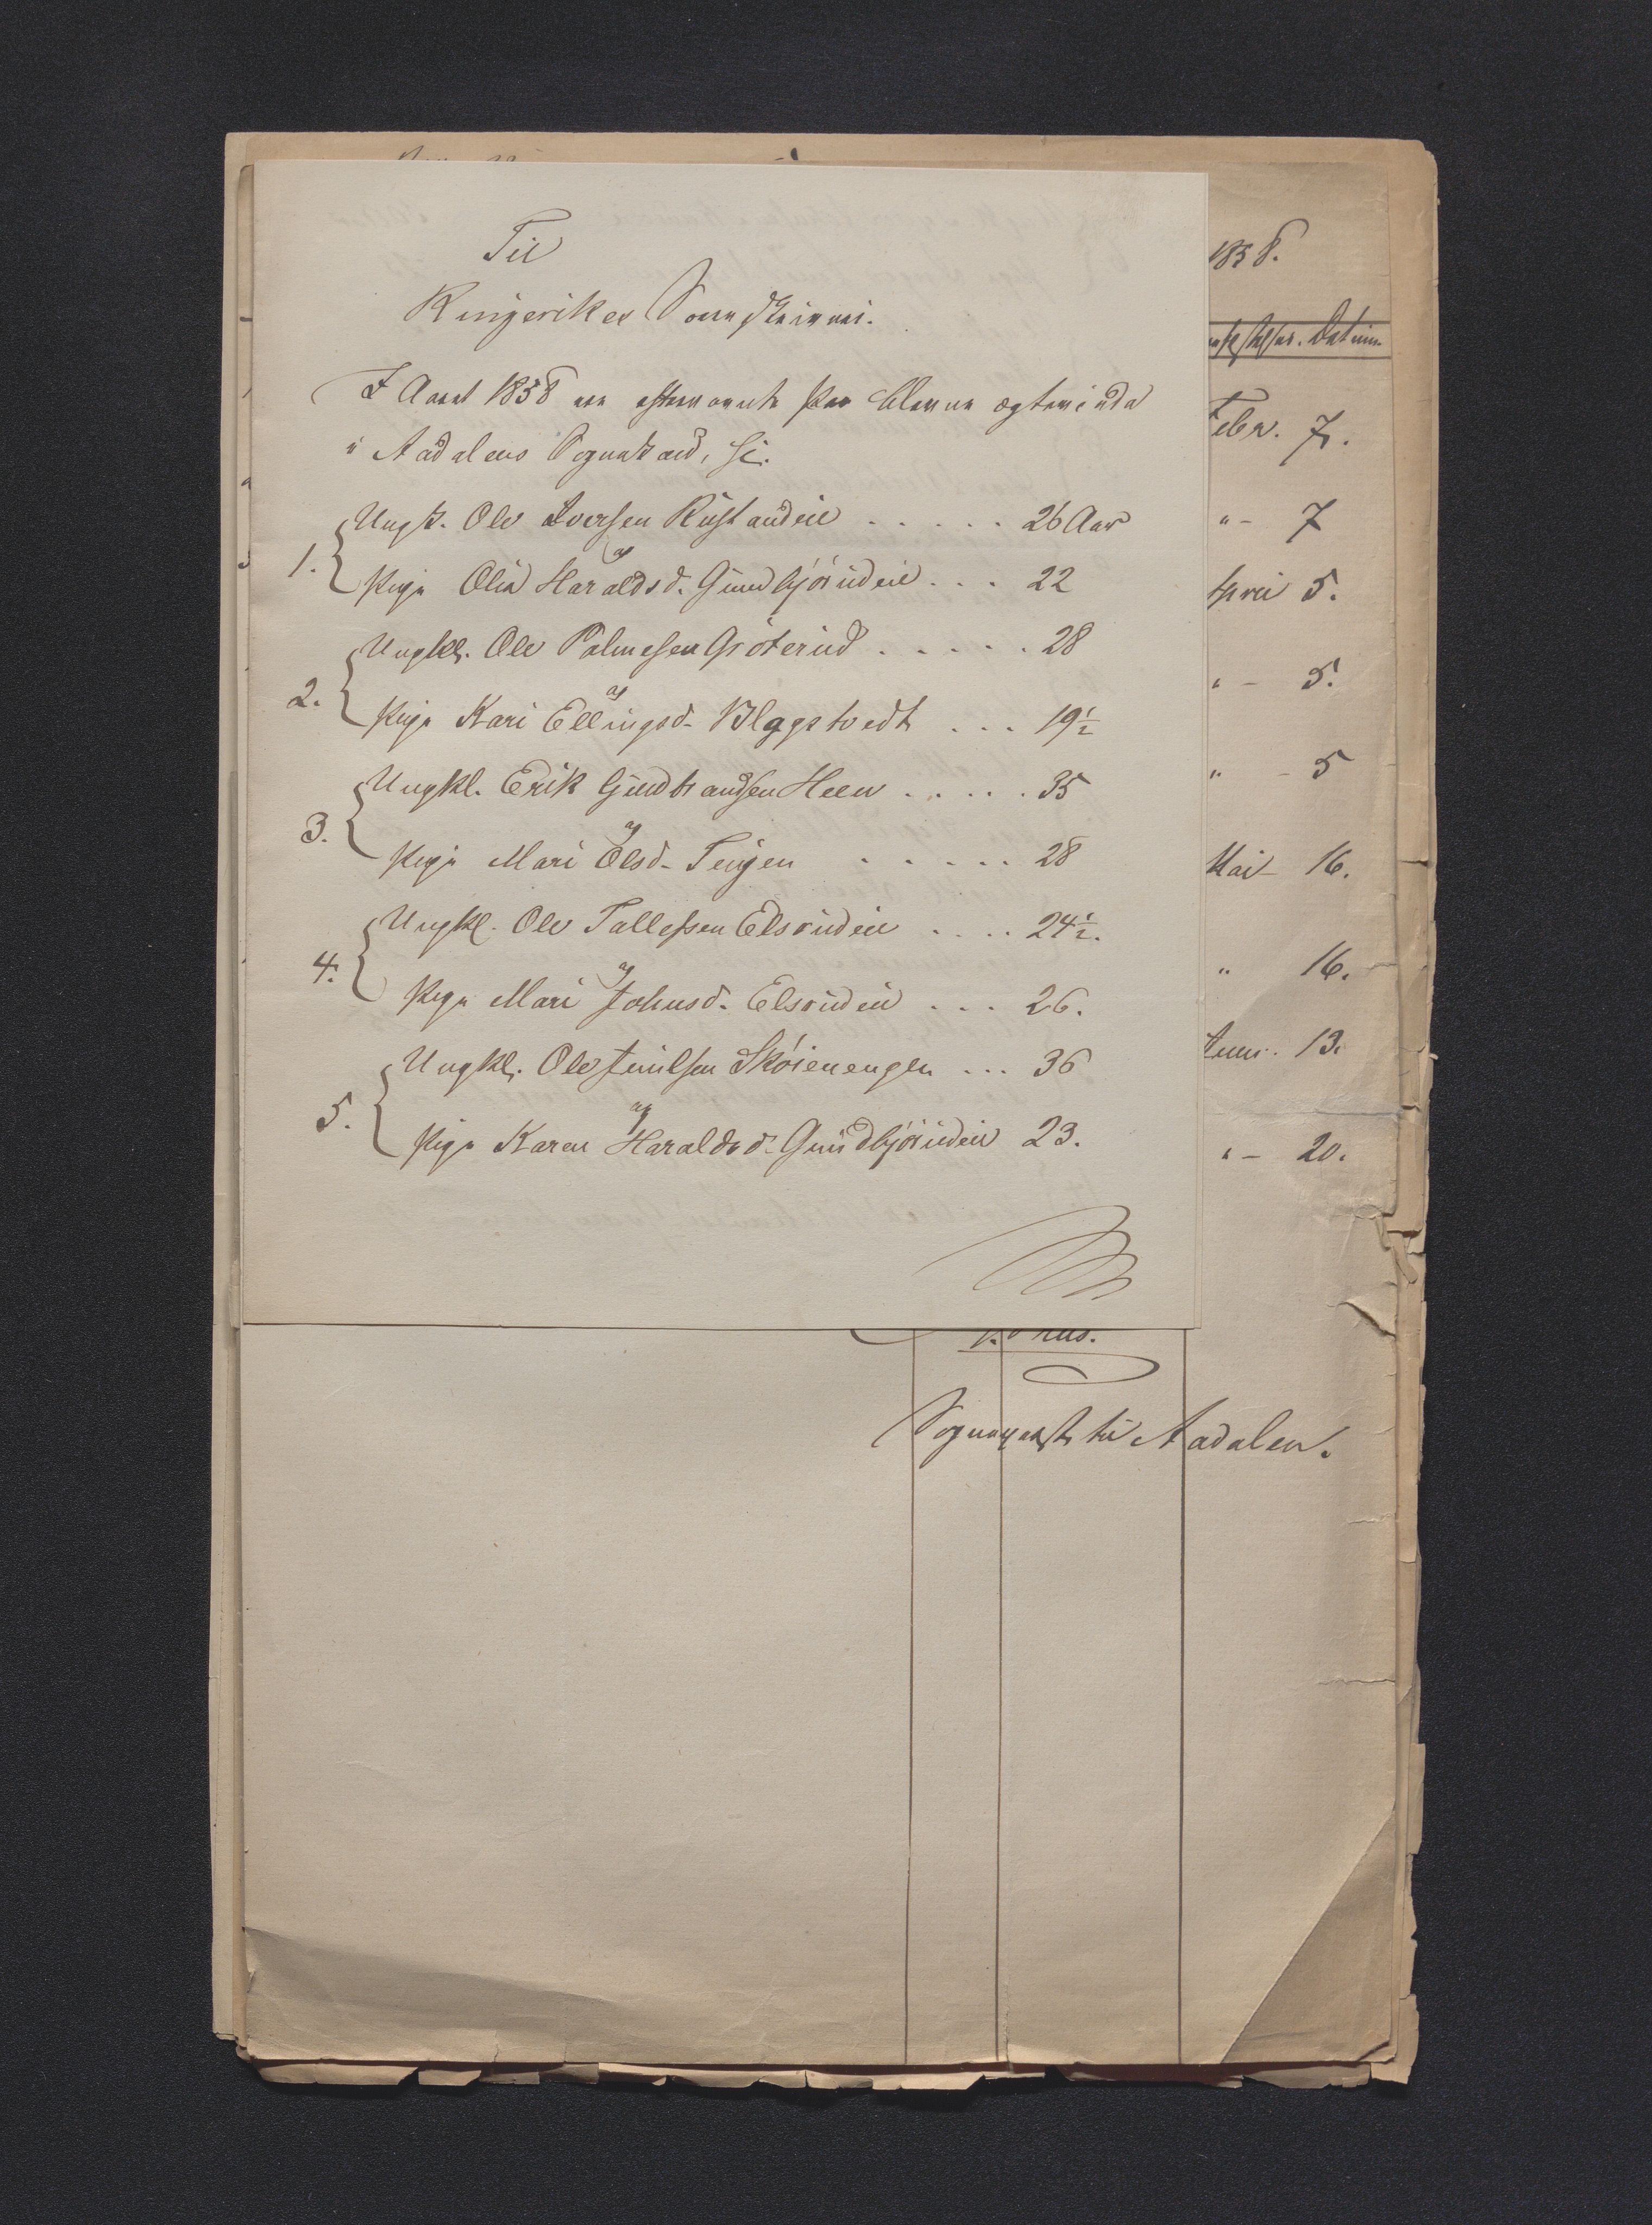 Til
Ringerikes Sorenskriveri.
I Aaret 1858 ere efternævnte Par blevne ægteviede
i Aadalens Sognekald, se:
1. Ungk. Ole Iversen Rustandeie ..... 26 Aar
og
Pige Olia Haraldsd. Gundbjörudeie ... 22
2. Ungkl. Ole Palmesen Gröterud ..... 28
og
Pige Kari Ellingsd. Blagstvedt ... 19½
3. Ungkl. Erik Gudbrandsen Heen ..... 35
og
Pige Mari Olsd. Teigen ...... 28
4. Ungkl. Ole Tollefsen Elsrudeie .... 24½.
og
Pige Mari Johnsd. Elsrudeie ... 26.
5. Ungkl. Ole Juulsen Sköienengen ... 36
og
Pige Karen Haraldsd. Gundbjörudeie 23.
1858.
Datum
Febr. 7.
" - 7
April 5.
" - 5.
" - 5
Mai - 16.
" 16.
Juni. 13.
" - 20.
Sognepræst til Aadalen.